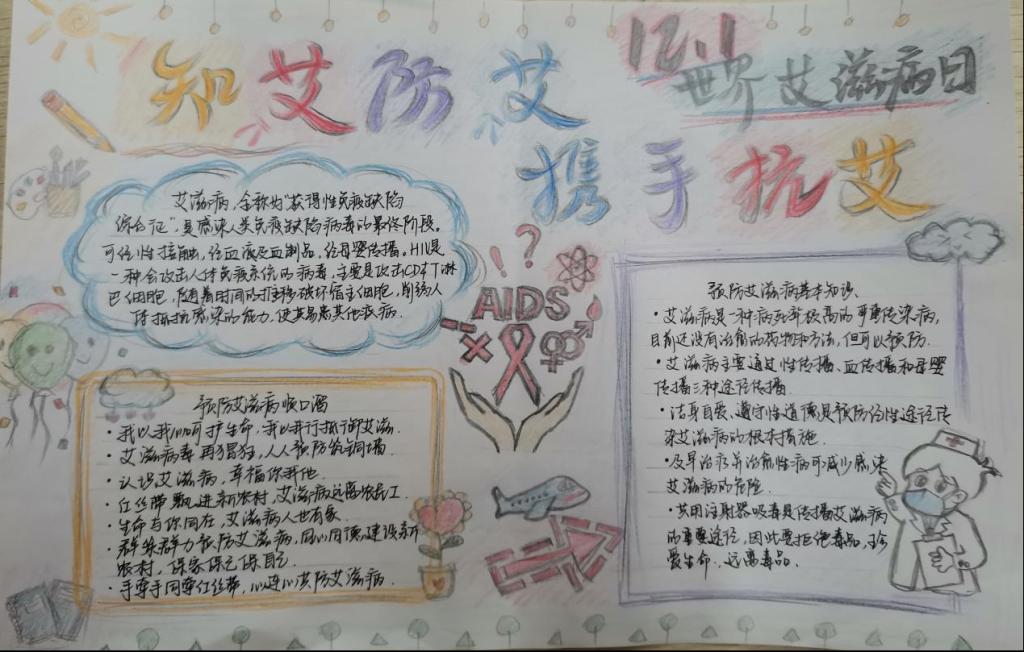 知艾防艾
12.1
世界艾滋病日
携手抗艾
艾滋病,全称为“获得性免疫缺陷
综合征”,是感染人类免疫缺陷病毒的最终阶段。
可经性接触,经血液及血制品,经母婴传播。HIV是
一种会攻击人体免疫系统的病毒,主要是攻击CD4T淋
巴细胞,随着时间的推移破坏宿主细胞,削弱人
体抵抗感染的能力,使其易患其他疾病.
AIDS
预防艾滋病顺口溜
·我以我心呵护生命,我以我行抵御艾滋.
·艾滋病毒再猖狂,人人预防筑铜墙.
·认识艾滋病,幸福你我他.
·红丝带飘进新农村,艾滋病远离农民工.
·生命与你同在,艾滋病人也有家.
·群策群力预防艾滋病,同心同德建设新
农村,保家保己保自己.
·手牵手同牵红丝带,心连心共防艾滋病.
预防艾滋病基本知识
·艾滋病是一种病死率极高的严重传染病,
目前还没有治愈的药物和方法,但可以预防.
·艾滋病主要通过性传播、血传播和母婴
传播三种途径传播.
·洁身自爱、遵守性道德是预防经性途径传
染艾滋病的根本措施.
·及早治疗并治愈性病可减少感染
艾滋病的危险.
·共用注射器吸毒是传播艾滋病
的重要途径,因此要拒绝毒品,珍
爱生命.远离毒品.